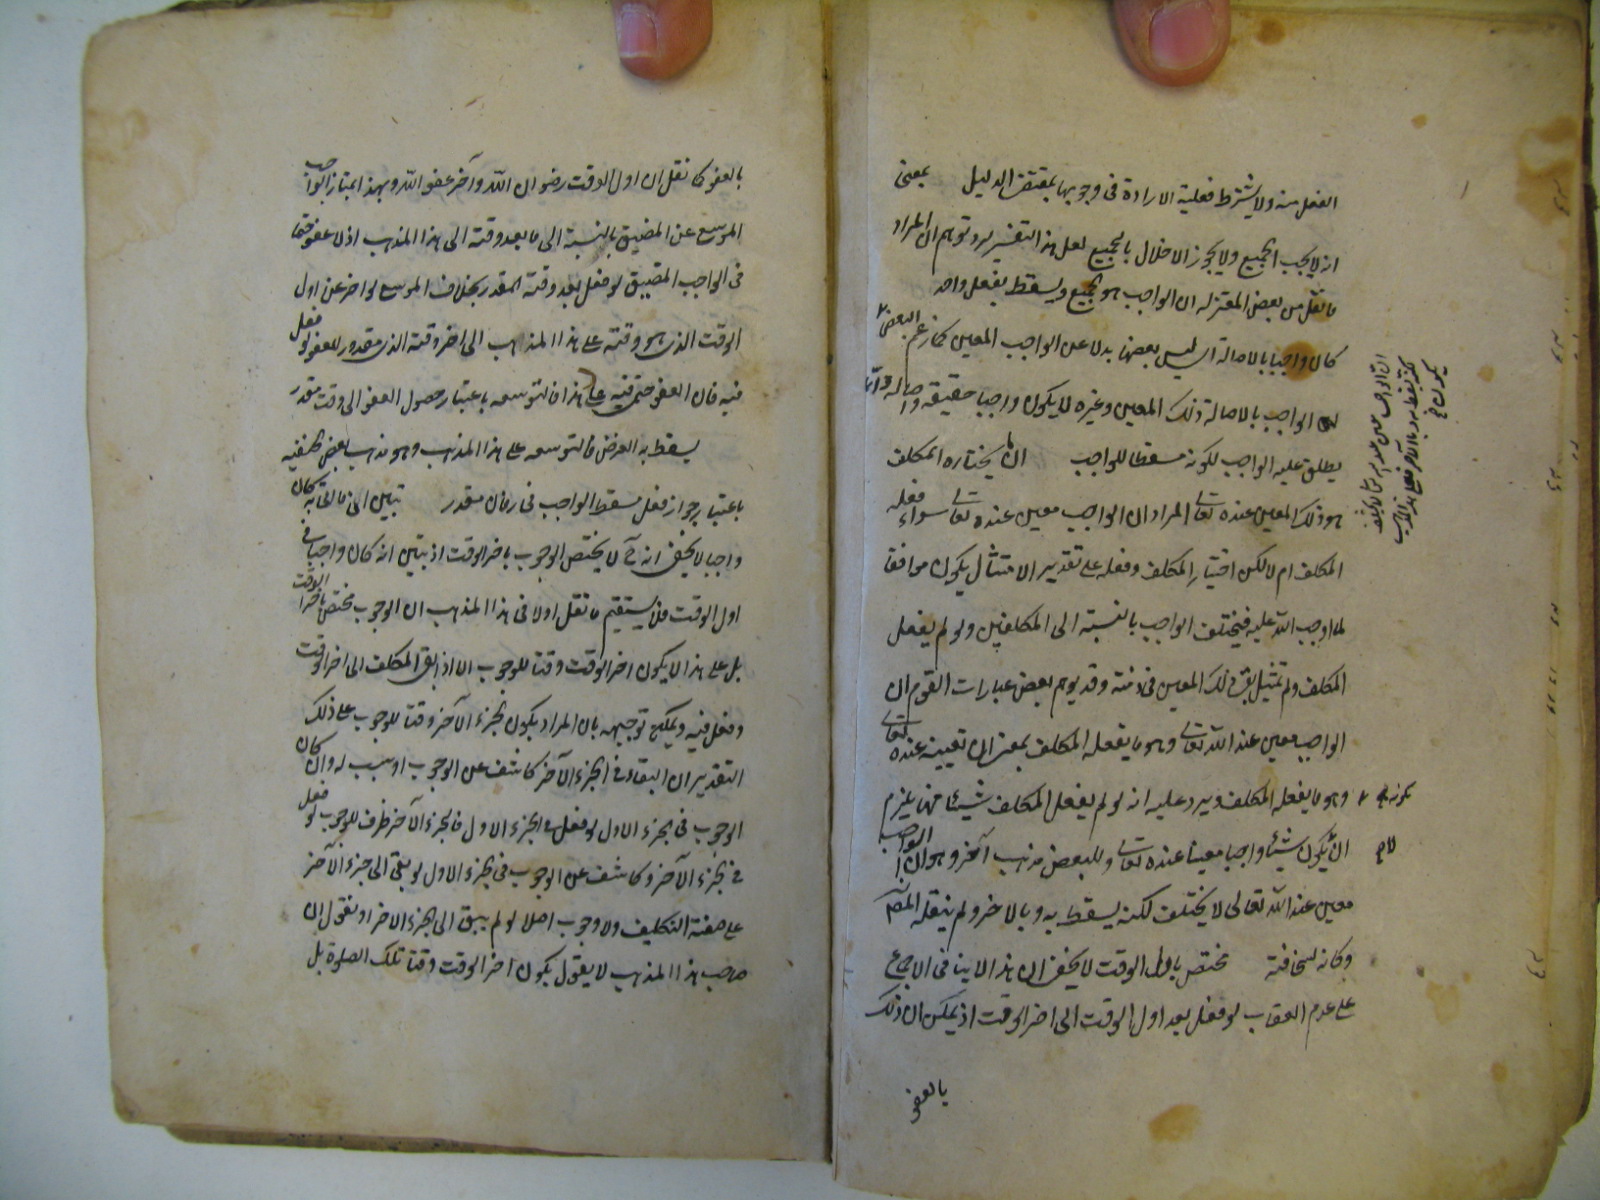 الفعل منه ولا يشترط فعلية الارادة فى وجوبها بمقتضى الدليل بمعنى
انه لا يجب الجميع ولا يجوز الاخلال بالجميع لعل هذا التفسير لرد توهم ان المراد
ما نقل من بعض المعتزلة ان الواجب هو الجميع ويسقط بفعل واحد
كان واجبا بالاصالة اى ليس بعضها بدلا عن الواجب المعين كما زعم البعض
الواجب بالاصالة ذلك المعين وغيره لا يكون واجبا حقيقة واصالة وانما
يطلق عليه الواجب لكونه مسقطا للواجب ان ما يختاره المكلف
هو ذلك المعين عنده تعالى المراد ان الواجب معين عنده تعالى سواء فعله
المكلف ام لا لكن اختيار المكلف وفعله على تقدير الامتثال يكون موافقا
لما اوجب الله عليه فيختلف الواجب بالنسبة الى المكلفين ولو لم يفعل
المكلف ولم تمتثل بقى ذلك المعين فى ذمته وقد يوهم بعض عبارات القوم ان
الواجب معين عند الله تعالى وهو ما يفعله المكلف بمعنى ان تعيينه عنده تعالى
بكونه وهو ما يفعله المكلف ويرد عليه انه لو لم يفعل المكلف شيئا منها يلزم
ان لا يكون شيئا واجبا معينا عنده تعالى وللبعض مذهب آخر وهو ان الواجب
معين عند الله تعالى لا يختلف لكنه يسقط به وبالاخر ولم ينقله المص
وكانه لسخافته مختص باول الوقت لا يخفى ان هذا لا ينافى الاجماع
على عدم العقاب لو فعل بعد اول الوقت الى اخر الوقت اذ يمكن ان ذلك
بالعفو
بالعفو كما نقل ان اول الوقت رضوان الله وآخر عفو الله وبهذا امتاز الواجب
الموسع عن المضيق بالنسبة الى ما بعد وقته الى هذا المذهب اذ لا عفو حتما
فى الواجب المضيق لو فعل بعد وقته المقدر بخلاف الموسع لو اخر عن اول
الوقت الذى هو وقته على هذا المذهب الى اخر وقته الذى مقدور للعفو لو فعل
فيه فان العفو حتمى فيه على هذا فالتوسعه باعتبار حصول العفو الى وقت مقدر
يسقط به الفرض فالتوسعه على هذا المذهب وهو مذهب بعض الحنفيه
باعتبار جواز فعل مسقط الواجب فى زمان مقدر تبين ان ما اتى به كان
واجبا لا يخفى انه لا يختص الوجوب باخر الوقت اذ تبين انه كان واجبا فى
اول الوقت فلا يستقيم ما نقل اولا فى هذا المذهب ان الوجوب مختص باخر الوقت
بل على هذا لا يكون اخر الوقت وقتا للوجوب الا اذا بقى المكلف الى اخر الوقت
وفعل فيه ويمكن توجيهه بان المراد بكون الجزء الآخر وقتا للوجوب على ذلك
التقدير ان البقاء فى الجزء الآخر كاشف عن الوجوب او سبب له وان كان
الوجوب فى الجزء الاول لو فعل فى الجزء الاول فالجزء الآخر ظرف للوجوب لو فعل
فى الجزء الآخر وكاشف عن الوجوب فى الجزء الاول لو بقى الى جزء الآخر
على صفة التكليف ولا وجوب اصلا لو لم يبق الى الجزء الاخر او نقول ان
صاحب هذا المذهب لا يقول بكون اخر الوقت وقتا لتلك الصلوة بل